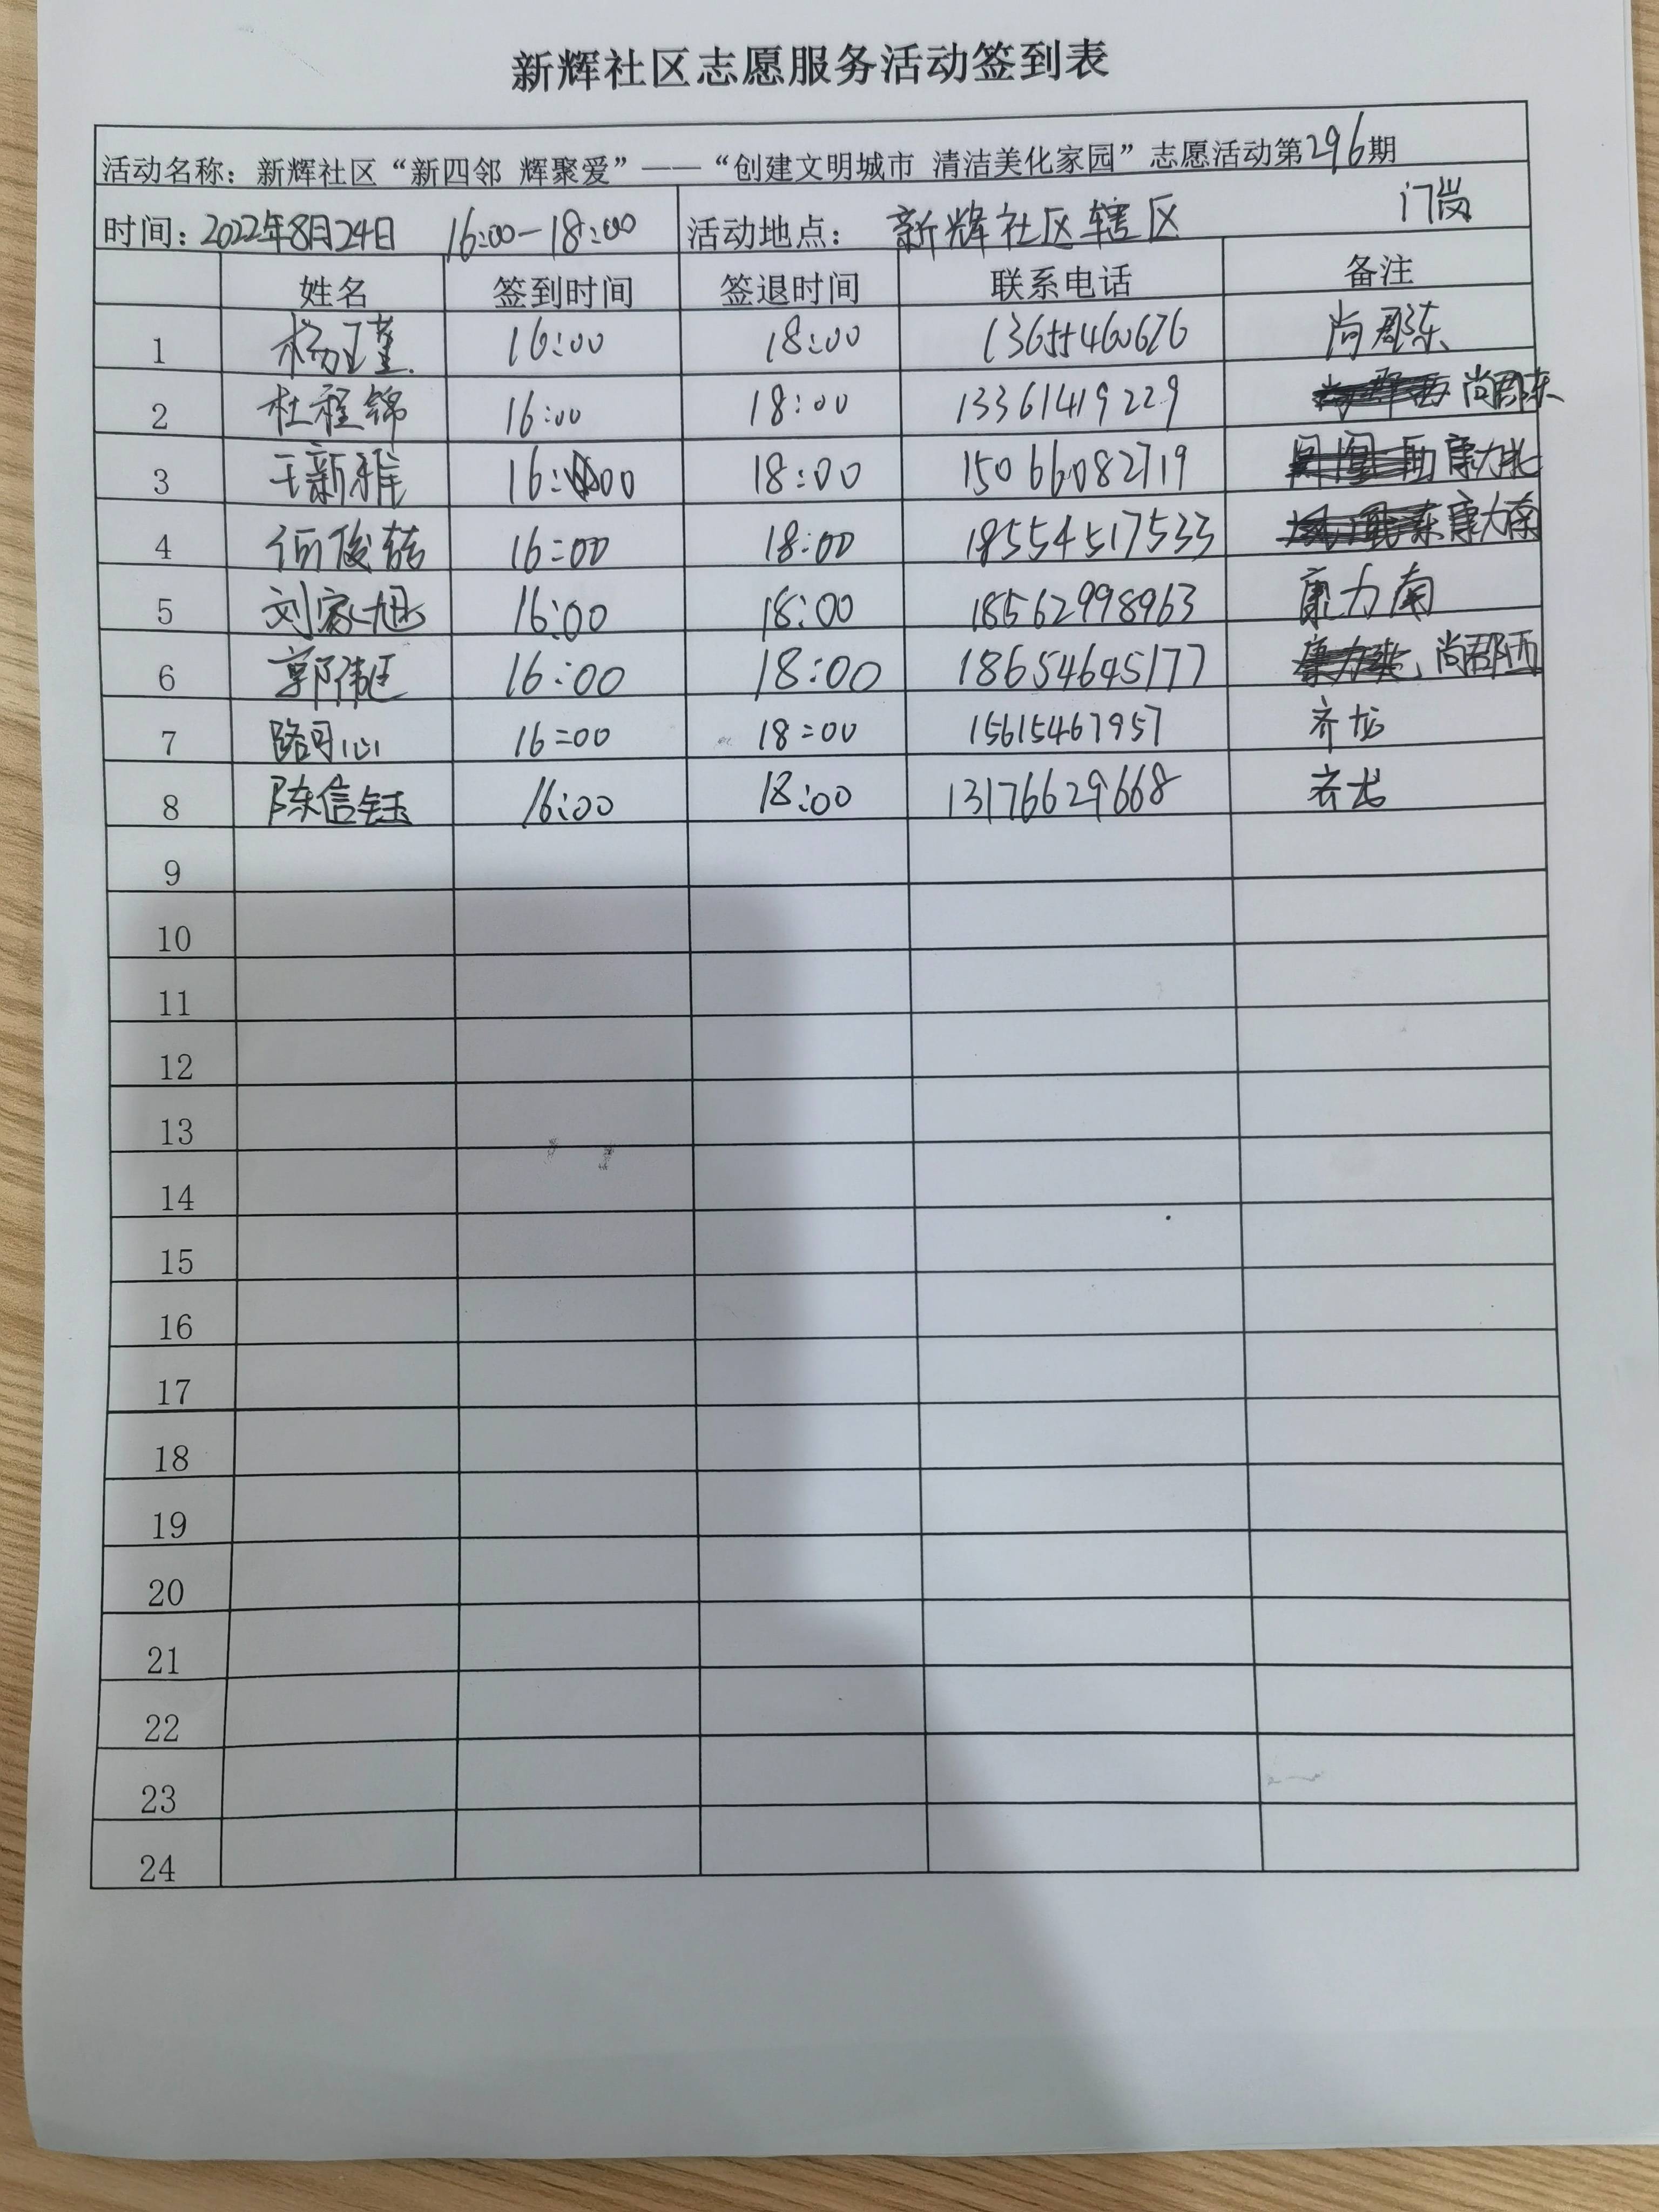 新辉社区志愿服务活动签到表
活动名称：新辉社区“新四邻 辉聚爱”——“创建文明城市 清洁美化家园”志愿活动第296期
时间：2022年8月24日 16:00-18:00 活动地点： 新辉社区辖区 门岗
姓名 签到时间 签退时间 联系电话 备注
1 杨 16:00 18:00 13655460676 尚郡东
2 杜程锦 16:00 18:00 13361419229 尚郡东
3 王新雅 16:00 18:00 15066082719 康力北
4 俊喆 16:00 18:00 18554517533 康力南
5 刘家旭 16:00 18:00 18562998963 康力南
6 郭伟 16:00 18:00 18654645177 尚郡西
7 路可心 16:00 18:00 15615467957 齐龙
8 陈信钰 16:00 18:00 13176629668 齐龙
9
10
11
12
13
14
15
16
17
18
19
20
21
22
23
24